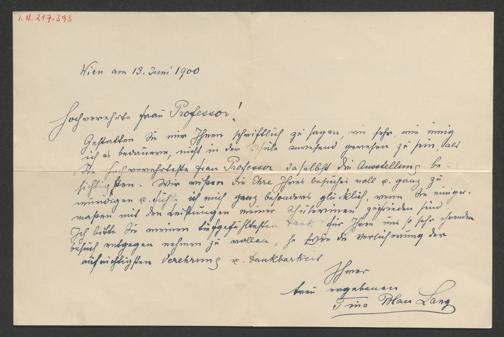 I.N. 217.393
Wien am 13. Juni 1900
Hochverehrte Frau Professor!
Gestatten Sie mir Ihnen schriftlich zu sagen, wie sehr, wie innig
ich es bedauere, nicht in der Schule anwesend gewesen zu sein, als
Sie hochverehrteste Frau Professor daselbst die Ausstellung be-
sichtigten. Wir wissen die Ehre Ihres Besuches voll u. ganz zu
würdigen u. fühle ich mich ganz besonders glücklich, wenn Sie einiger-
maßen mit den Leistungen meiner Schülerinnen zufrieden sind.
Ich bitte Sie meinen tiefgefühltesten Dank für Ihren uns so sehr ehrenden
Besuch entgegen nehmen zu wollen, so wie die Versicherung der
aufrichtigsten Verehrung u. Dankbarkeit
Ihrer
treu ergebenen
Lang